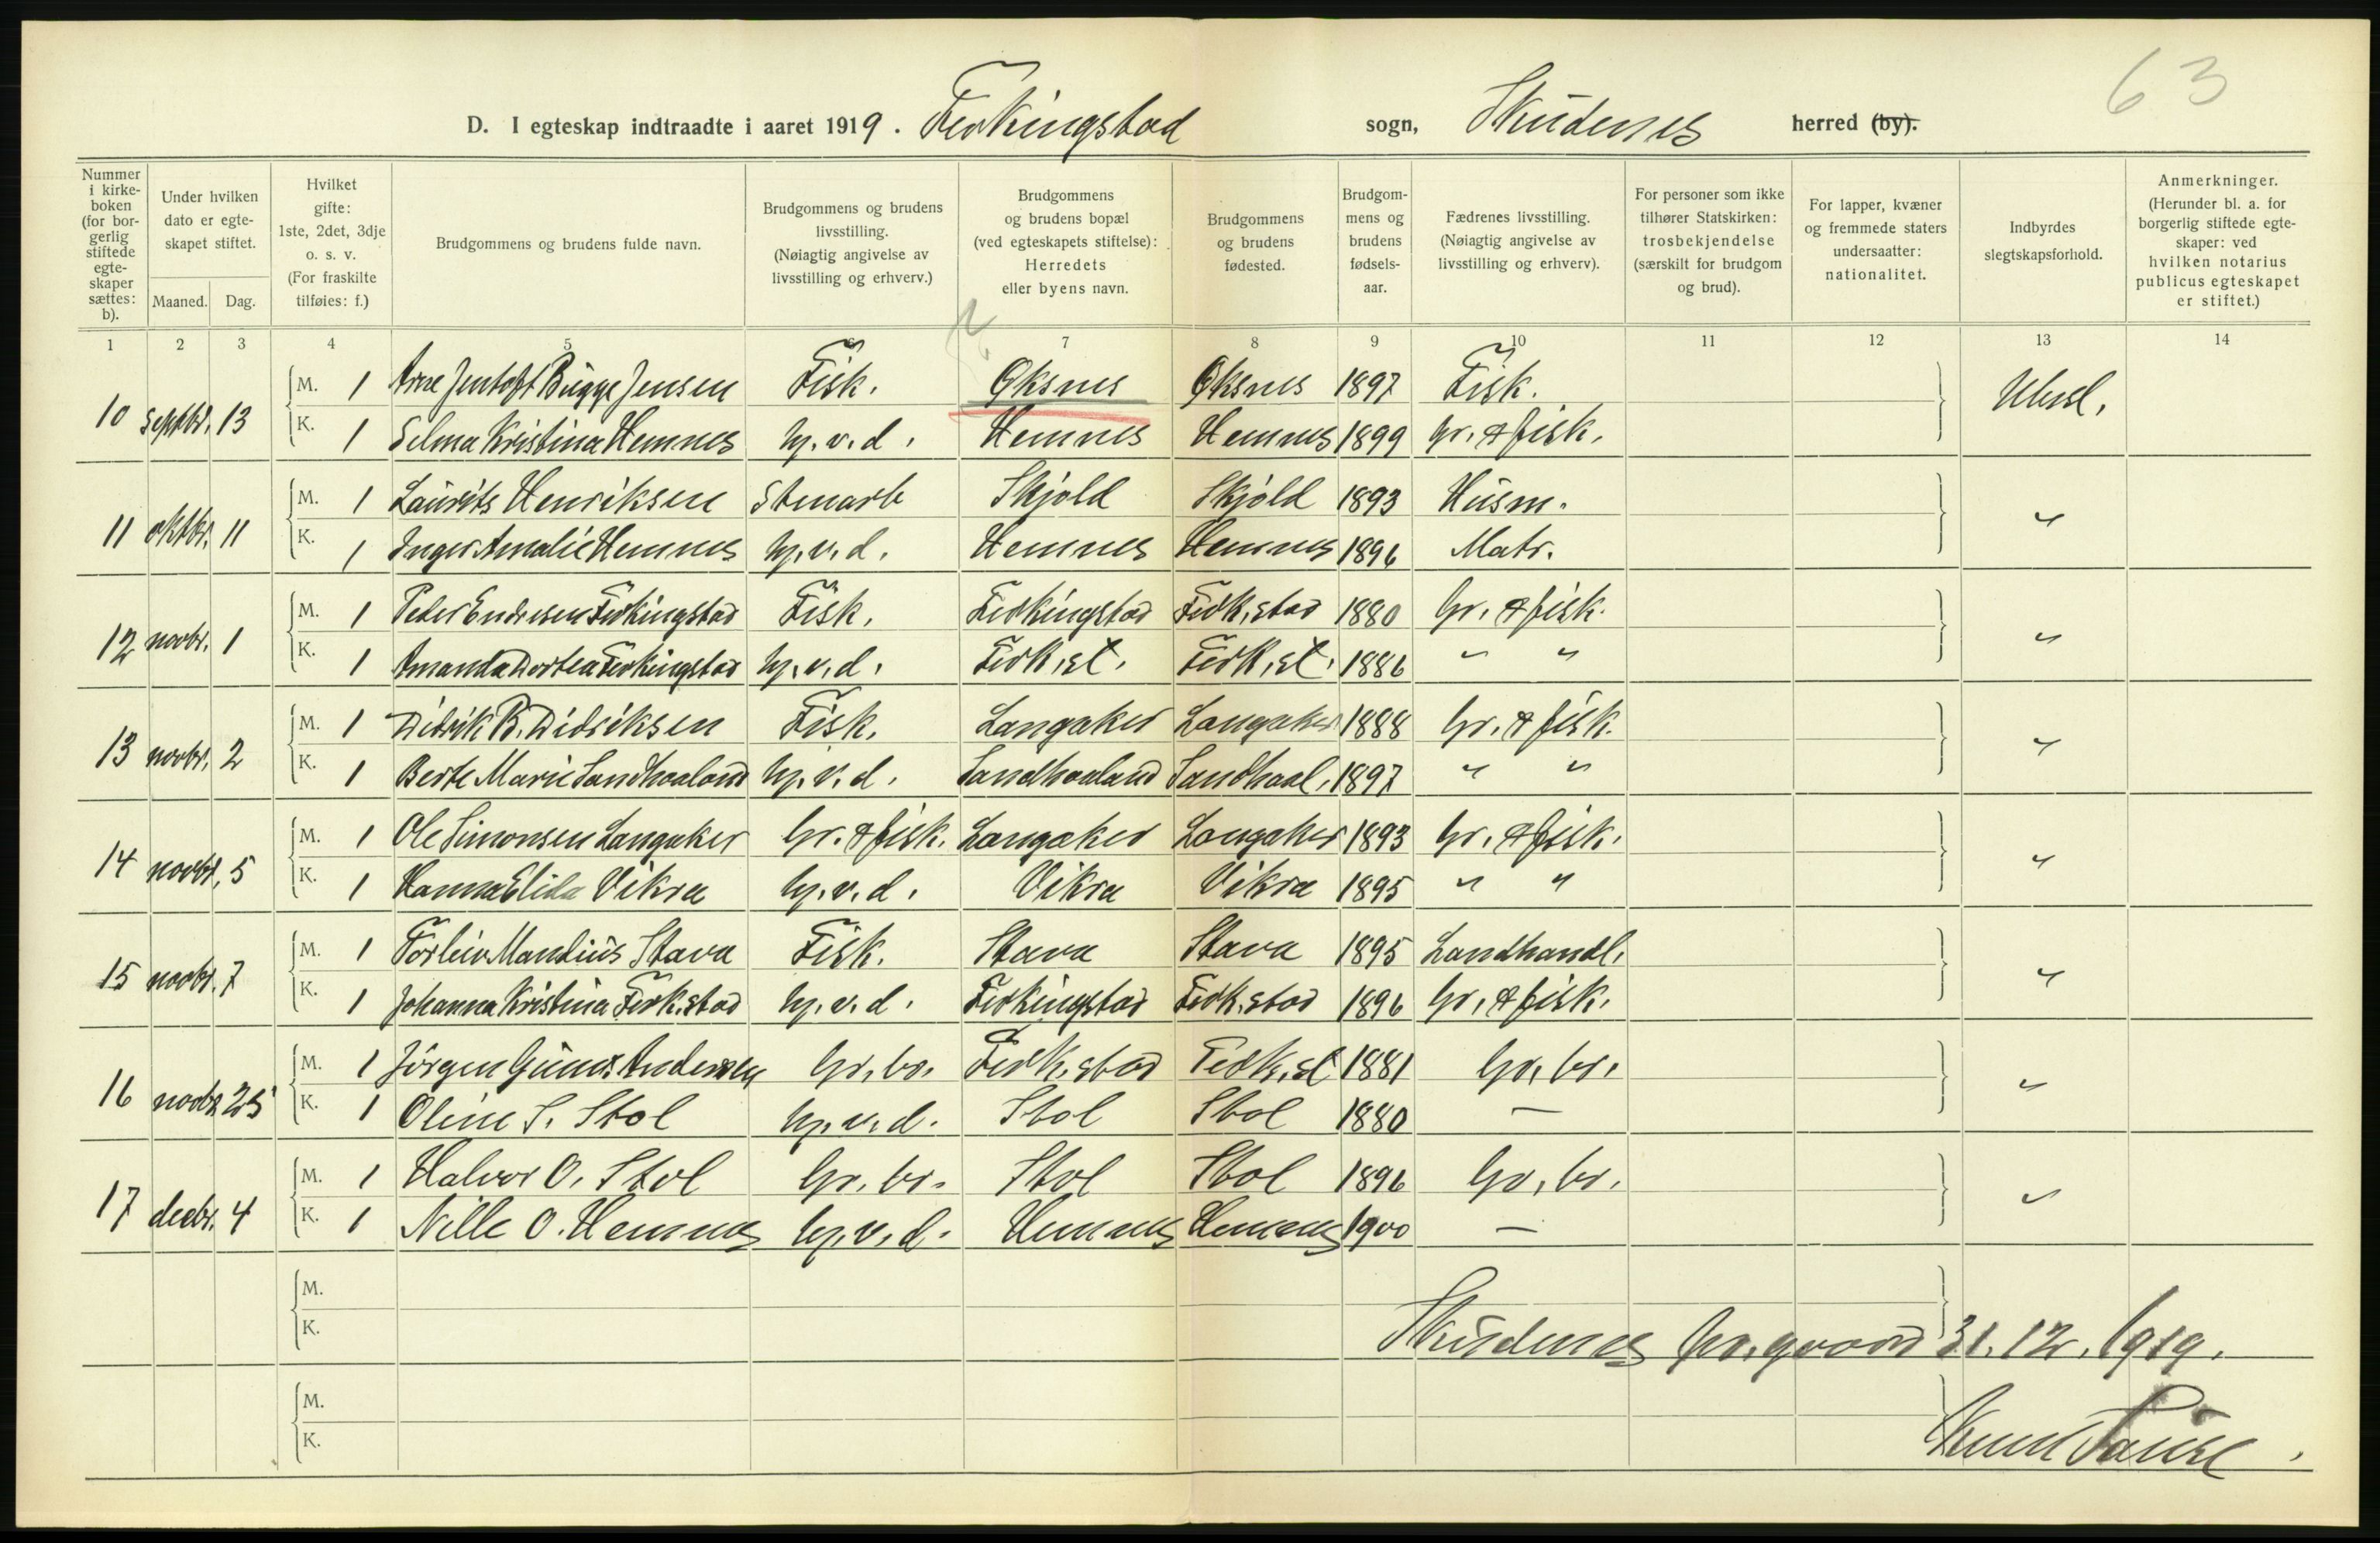 63
D. I egteskap indtraadte i aaret 1919. Ferkingstad sogn, Skudenes herred (by).
Nummer i kirkeboken (for borgerlig stiftede egteskaper sættes: b).
Under hvilken dato er egteskapet stiftet.
Maaned. Dag.
Hvilket gifte: 1ste, 2det, 3dje o. s. v. (For fraskilte tilføies: f.)
Brudgommens og brudens fulde navn.
Brudgommens og brudens livsstilling. (Nøiagtig angivelse av livsstilling og erhverv.)
Brudgommens og brudens bopæl (ved egteskapets stiftelse): Herredets eller byens navn.
Brudgommens og brudens fødested.
Brudgommens og brudens fødselsaar.
Fædrenes livsstilling. (Nøiagtig angivelse av livsstilling og erhverv).
For personer som ikke tilhører Statskirken: trosbekjendelse (særskilt for brudgom og brud).
For lapper, kvæner og fremmede staters undersaatter: nationalitet.
Indbyrdes slegtskapsforhold.
Anmerkninger. (Herunder bl. a. for borgerlig stiftede egteskaper: ved hvilken notarius publicus egteskapet er stiftet.)
1 2 3 4 5 6 7 8 9 10 11 12 13 14
10 septbr. 13 M. 1 Arne Jentoft Bugge Jensen Fisk. Øksnes Øksnes 1897 Fisk. Ubesl.
K. 1 Selma Kristina Hemnes hp. v. d. Hemnes Hemnes 1899 Gr. & fisk.
11 oktbr. 11 M. 1 Laurits Henriksen Stenarb Skjold Skjold 1893 Husm. "
K. 1 Inger Amalie Hemnes hp. v. d. Hemnes Hemnes 1896 Matr.
12 novbr. 1 M. 1 Peder Endresen Ferkingstad Fisk. Ferkingstad Ferk.stad 1880 Gr. & fisk. "
K. 1 Amanda Dortea Ferkingstad hp. v. d. Ferk.st. Ferk.st. 1886 " "
13 novbr. 2 M. 1 Didrik B. Didriksen Fisk. Langaker Langaker 1888 Gr. & fisk. "
K. 1 Berte Marie Sandhaaland hp. v. d. Sandhaaland Sandhaal. 1897 " "
14 novbr. 5 M. 1 Ole Simonsen Langaker Gr. & fisk. Langaker Langaker 1893 Gr. & fisk. "
K. 1 Hanna Elida Vikra hp. v. d. Vikra Vikra 1895 " "
15 novbr. 7 M. 1 Torleiv Mandius Stava Fisk. Stava Stava 1895 Landhandl. "
K. 1 Johanna Kristina Ferk.stad hp. v. d. Ferkingstad Ferk.stad 1896 Gr. & fisk.
16 novbr 25 M. 1 Jörgen Andersen Gr. br. Ferk.stad Ferk.st 1881 Gr. br. "
K. 1 Oline S. Stol hp. v. d. Stol Stol 1880 —
17 decbr. 4 M. 1 Halvor O. Stol Gr. br. Stol Stol 1896 Gr. br. "
K. 1 Nille O. Hemnes hp. v. d. Hemnes Hemnes 1900 —
M.
K.
Skudenes pr.gaard 31.12.1919.
M.
K.